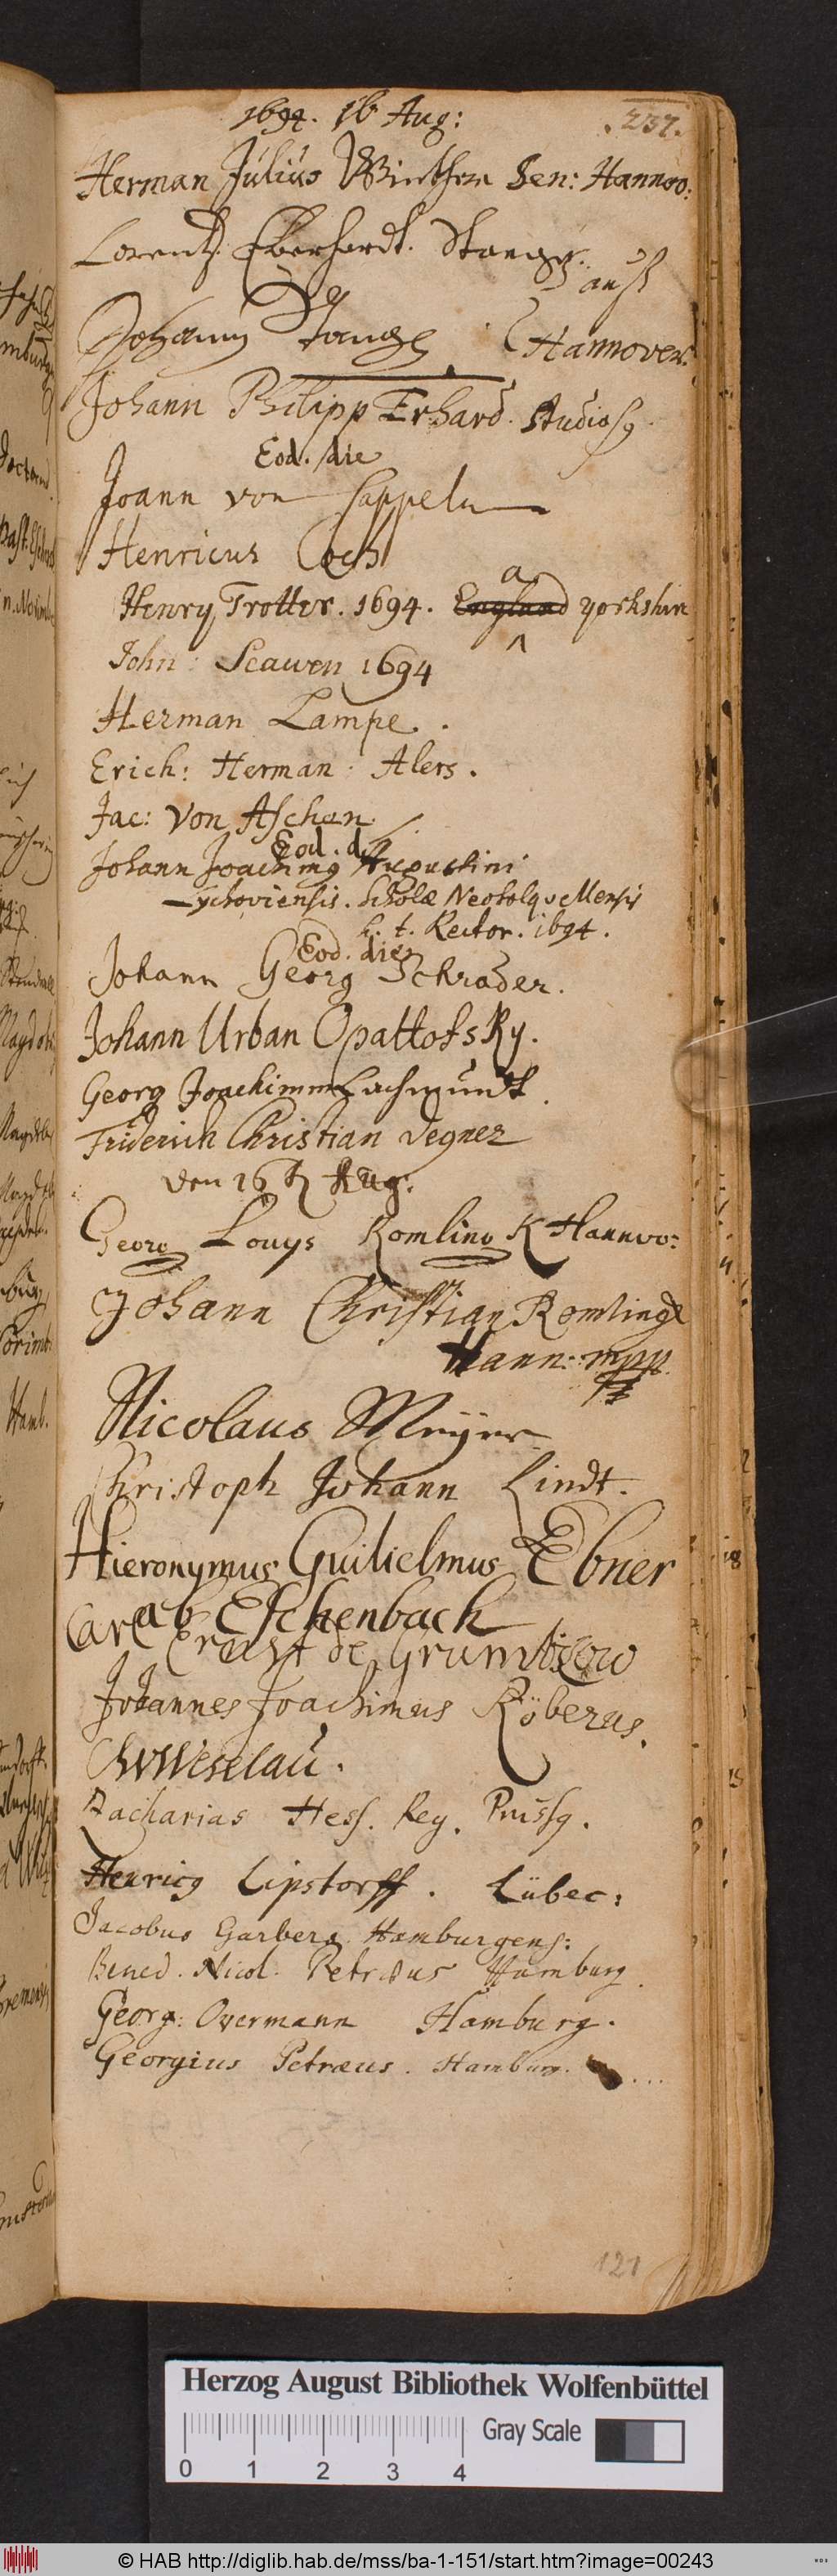 1694. 16 Aug:
.237.
Herman Julius Winthem Sen: Hannov:
Lorentz Eberhardt. Stange.
auß
Johann Stange
Hannover.
Johann Philipp Erhard. Studios9
Eod. die
Joann von Cappeln
Henricus Coch
Henry Trotter. 1694. England a yorkshire
John: Seawen 1694
Herman Lampe.
Erich: Herman: Alers.
Jac: Von Aschen
Eod. d.
Johann Joachim9 Augustini
Lychoviensis. Scholæ
h. t. Rector. 1694.
Eod. die
Johann Georg Schrader.
Johann Urban Opattofsky.
Georg Joachimm Lachmundt.
Friderich Christian Degner
den 16 Aug:
Georg Louys Romling K Hannvo:
Johann Christian Romling
Hann: mpp.
Nicolaus Meyer
Christoph Johann Lindt.
Hieronymus Guilielmus Ebner
ab Eschenbach
Carl Ernst de Grumbkow
Johannes Joachimus Röberus.
CWWeselau.
Zacharias Hess. Reg. Pruss9.
Henric9 Lipstorff. Lübec:
Jacobus Garbers Hamburgens:
Bened. Nicol. Petræus Hamburg.
Georg: Overmann Hamburg.
Georgius Petræus. Hamburg.
121
Herzog August Bibliothek Wolfenbüttel
Gray Scale
0 1 2 3 4
© HAB http://diglib.hab.de/mss/ba-1-151/start.htm?image=00243